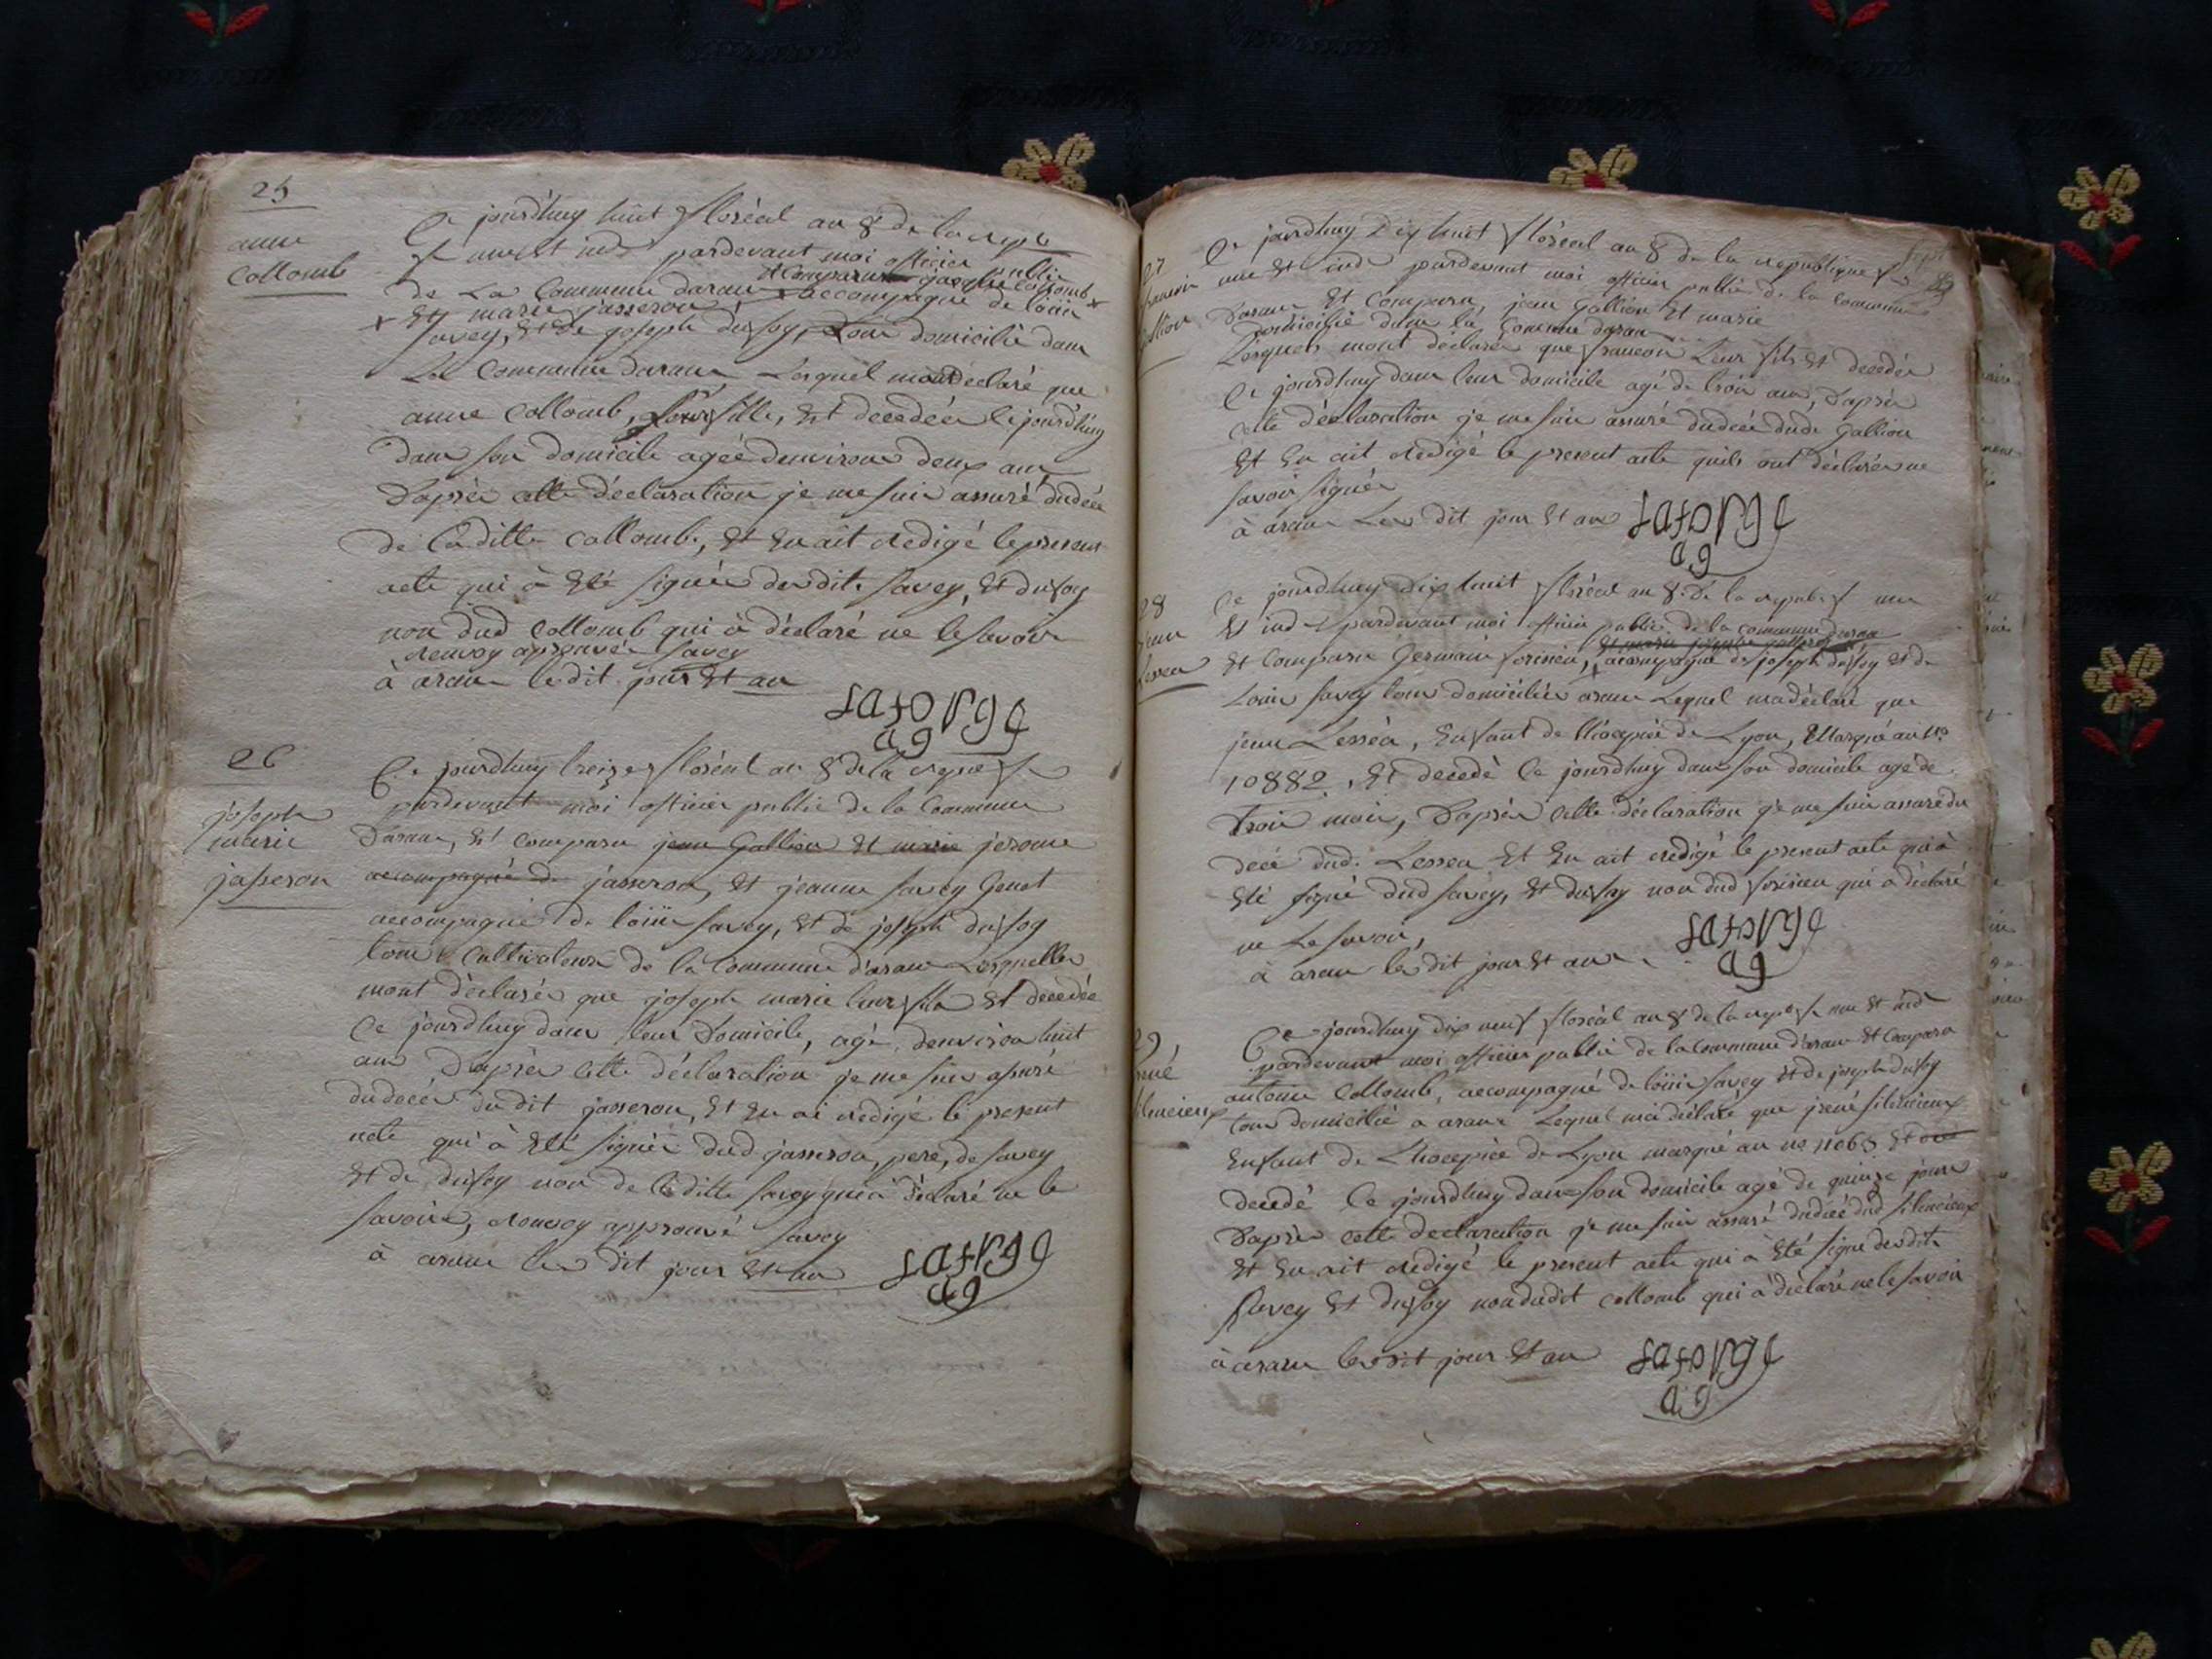 25
anne
Collomb
Ce jourdhuy huit floréal an 8 de la repb
f. une et ind pardevant moi officier public
de La Commune daranc et comparu jacque collomb x
x Et marie jasseron accompagné de loüis
savey, Et de joseph dufoy, tous domicilié dans
La Commune daranc Lesquel mont declaré que
anne Collomb, leur fille, Est decedée cejourdhuy
dans son domicile agée denviron deux ans
Daprès cette déclaration je me suis assuré dudecé
de Laditte Collomb, Et En ait redigé le present
acte qui à Eté signée desdits savey, Et dufoy
non dud Collomb qui à déclaré ne le savoir
renvoy aprouvée savey
à aranc le dit jour Et an
laforge
ag
26
joseph
marie
jasseron
Ce jourdhuy treize floréal an 8 dela repue f.
pardevant moi officier public de la Commune
Daranc, Est comparu jean Gallion Et marie jerome
accompagné de jasseron, Et jeanne savey Genet
accompagné de loüis savey, Et de joseph dufoy
tous Cultivateurs de la Commune d'aranc Lesquelles
mont déclarés que joseph marie leur fils Est decedée
Ce jourdhuy dans leur Domicile, agé denviron huit
ans Daprès Cette déclaration je me suis assuré
dudecés dudit jasseron, Et En ai redigé le present
acte qui à Eté signée dud jasseron, pere, de savey
Et de dufoy non de laditte savey qui à déclaré ne le
savoir, renvoy approuvé savey
à aranc les dit jour Et an
laforge
ag
27
Ce jourdhuy Dix huit floréal an 8 de la republique f.
une Et ind pardevant moi officier public de la Commune
Daranc Et Comparu, jean Gallion Et marie
domicilié dans la Commune daranc
Lesquels mont déclarés que francois Leur fils Est decedée
Ce jourdhuy dans leur domicile agé de trois ans, Daprès
cette déclaration je me suis assuré dudecé dudt Gallion
Et En ait redigé le present acte quils ont déclarés ne
savoir signée
à aranc Les dit jour Et an laforge
ag
28
Ce jourdhuy dix huit floréal an 8 De la repube f une
Et ind pardevant moi officier public de la commune daranc
Et Comparu Germain forinien, accompagné de joseph dufoy Et de
Loüis savey tous domiciliés aranc Lequel madéclaré que
jean Lesséa, Enfant de lhospice de Lyon, Marqué au no
10882, Et decedé Ce jourdhuy dans son domicile agé de
trois mois, Daprès Cette déclaration je me suis assuré du
decé dud. Lessea Et En ait redigé le present acte qui à
Eté signé dud savey, Et dufoy non dud forinien qui à déclaré
ne Le savoir,
à aranc les dit jour Et an
laforge
ag
29,
rené
silencieux
Ce jourdhuy dix neuf floréal an 8 de la repe f. une Et ind
pardevant moi officier public de la Commune d'aranc Et Comparu
antoine Collomb, accompagné de loüis savey Et de joseph dufoy
tous domicilié a aranc Lequel ma déclaré que jrené silencieux
Enfant de Lhospice de Lyon marqué au no 11065 Et
decedé Ce jourdhuy dans son domicile agé de quinze jours
Daprès cette declaration je me suis assuré dudecé dud silencieux
Et En ait redigé le present acte qui à Eté signé desdits
savey Et dufoy non dudit Collomb qui à déclaré ne le savoir
à aranc les dit jour Et an laforge
ag